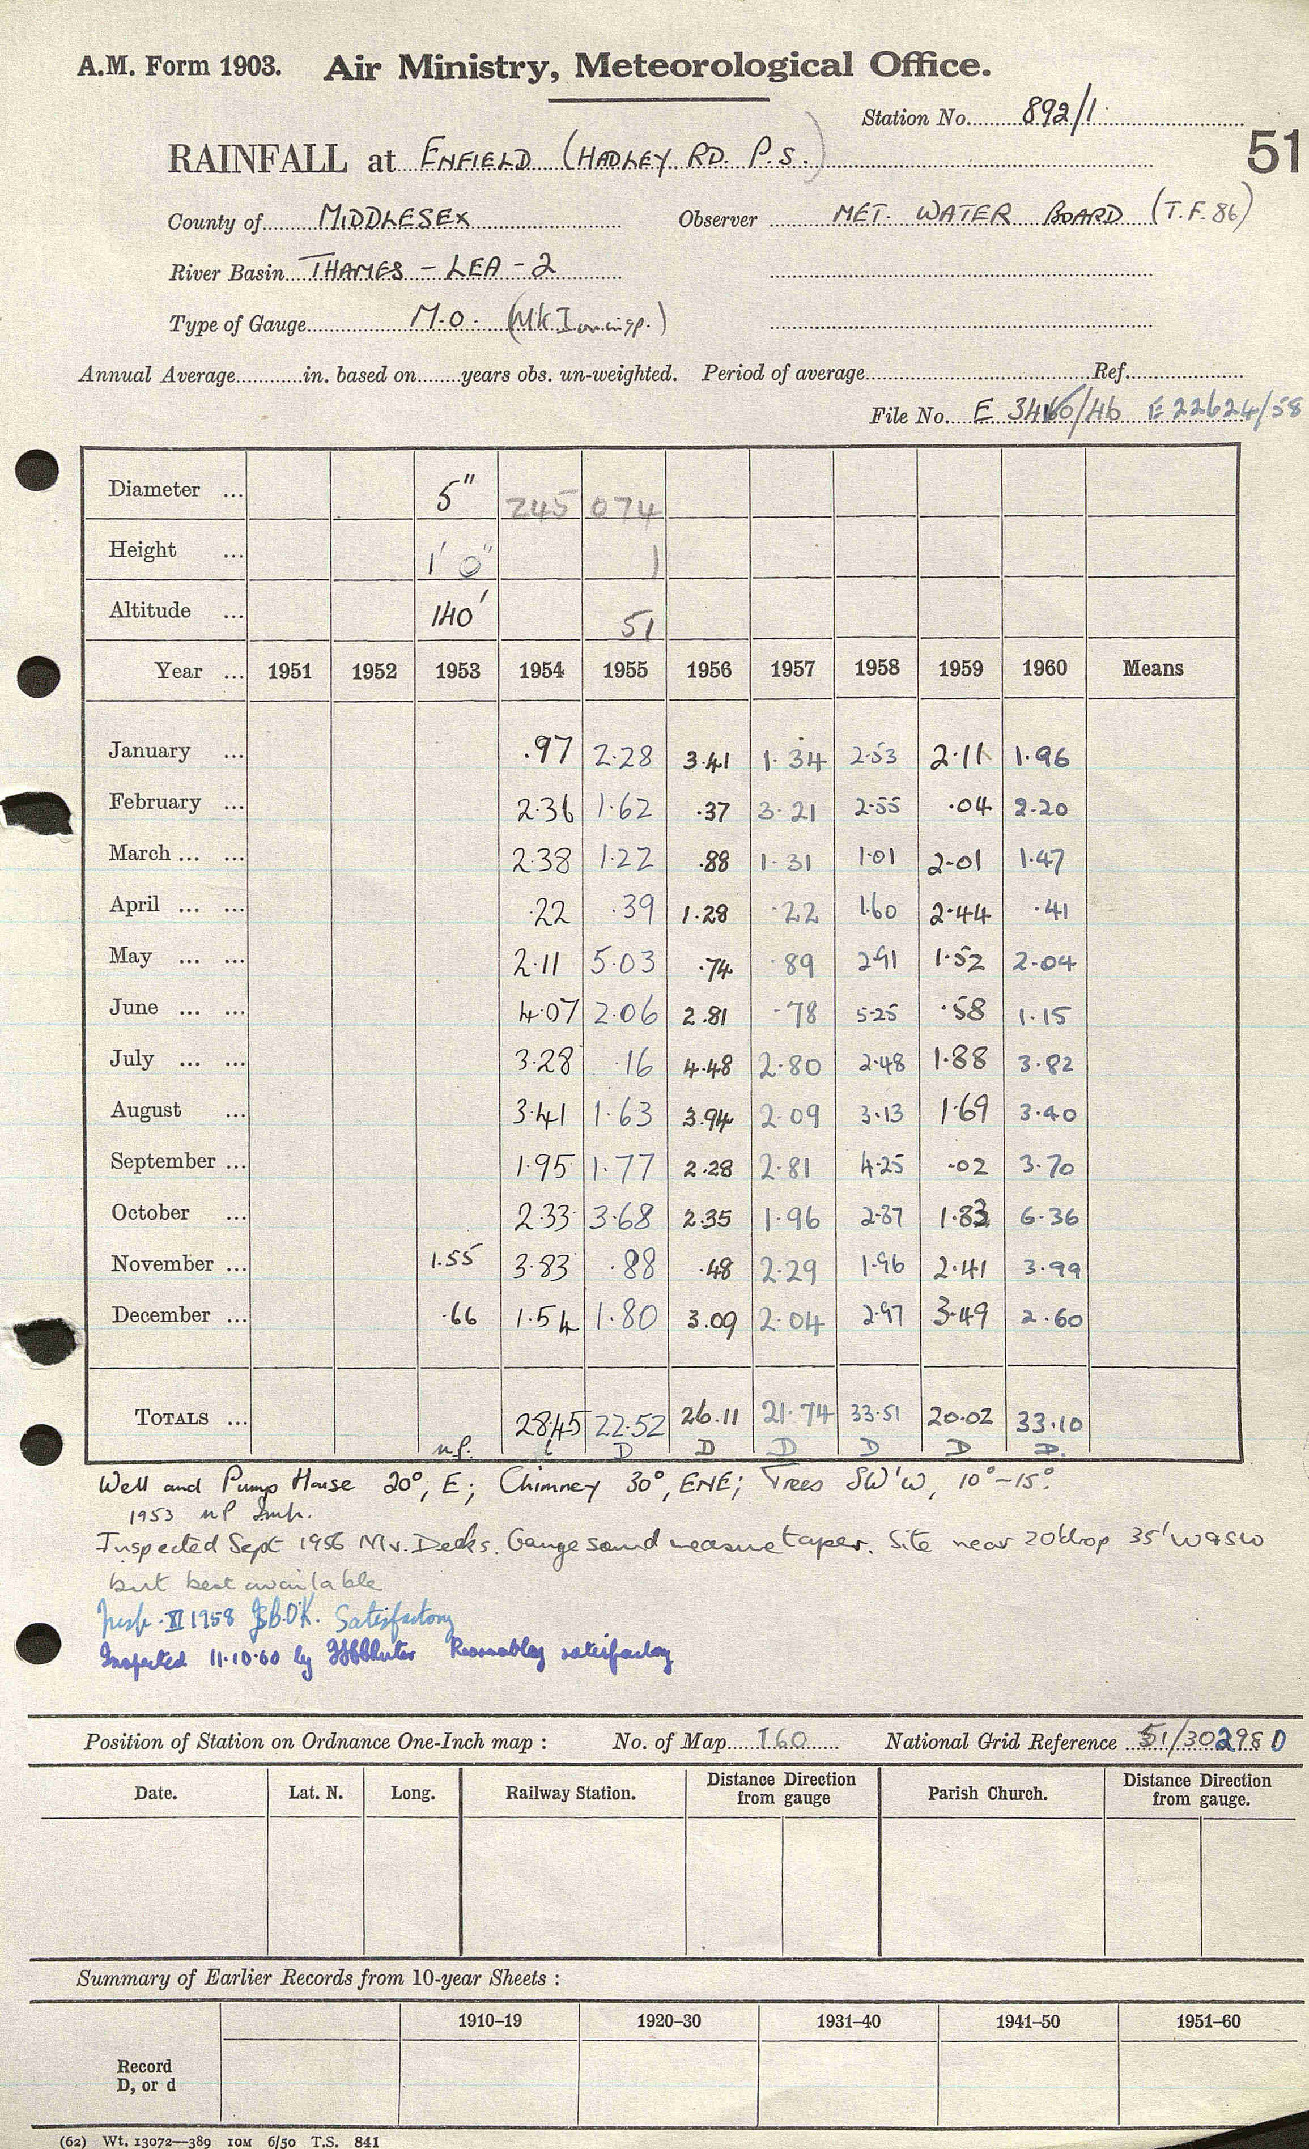 A.M. Form 1903. Air Ministry, Meteorological Office.
Station No. 892/1
51
RAINFALL at ENFIELD (HADLEY RD. P.S.)
County of MIDDLESEX Observer MET. WATER BOARD (T.F. 86)
River Basin THAMES - LEA - 2
Type of Gauge M.O. (Mk I)
Annual Average in. based on years obs. un-weighted. Period of average Ref.
File No. E 3460/46 E 22624/58
Diameter ... 5" 245 074
Height ... 1' 0" 1
Altitude ... 140' 51
Year ... 1951 1952 1953 1954 1955 1956 1957 1958 1959 1960 Means
January ... .97 2.28 3.41 1.34 2.53 2.11 1.96
February ... 2.36 1.62 .37 3.21 2.55 .04 2.20
March ... ... 2.38 1.22 .88 1.31 1.01 2.01 1.47
April ... ... .22 .39 1.28 .22 1.60 2.44 .41
May ... ... 2.11 5.03 .74 .89 2.91 1.52 2.04
June ... ... 4.07 2.06 2.81 .78 5.25 .58 1.15
July ... ... 3.28 .16 4.48 2.80 2.48 1.88 3.82
August ... 3.41 1.63 3.94 2.09 3.13 1.69 3.40
September ... 1.95 1.77 2.28 2.81 4.25 .02 3.70
October ... 2.33 3.68 2.35 1.96 2.87 1.83 6.36
November ... 1.55 3.83 .88 .48 2.29 1.96 2.41 3.99
December ... .66 1.54 1.80 3.09 2.04 2.97 3.49 2.60
TOTALS ... 28.45 22.52 26.11 21.74 33.51 20.02 33.10
n.p. D D D D D D.
Well and Pump House 20°, E; Chimney 30°, ENE; Trees SW'W, 10°-15°.
1953 nP
Inspected Sept 1956 Mr. Decks. Gauge sound measure taper. Site near 20' drop 35' W & SW
but best available
Insp. XI 1958 Satisfactory
Inspected 11.10.60 by Reasonably satisfactory
Position of Station on Ordnance One-Inch map : No. of Map 160 National Grid Reference 51/302980
Date. Lat. N. Long. Railway Station. Distance Direction from gauge Parish Church. Distance Direction from gauge.
Summary of Earlier Records from 10-year Sheets :
1910–19 1920–30 1931–40 1941–50 1951–60
Record
D, or d
(62) Wt. 13072—389 10M 6/50 T.S. 841